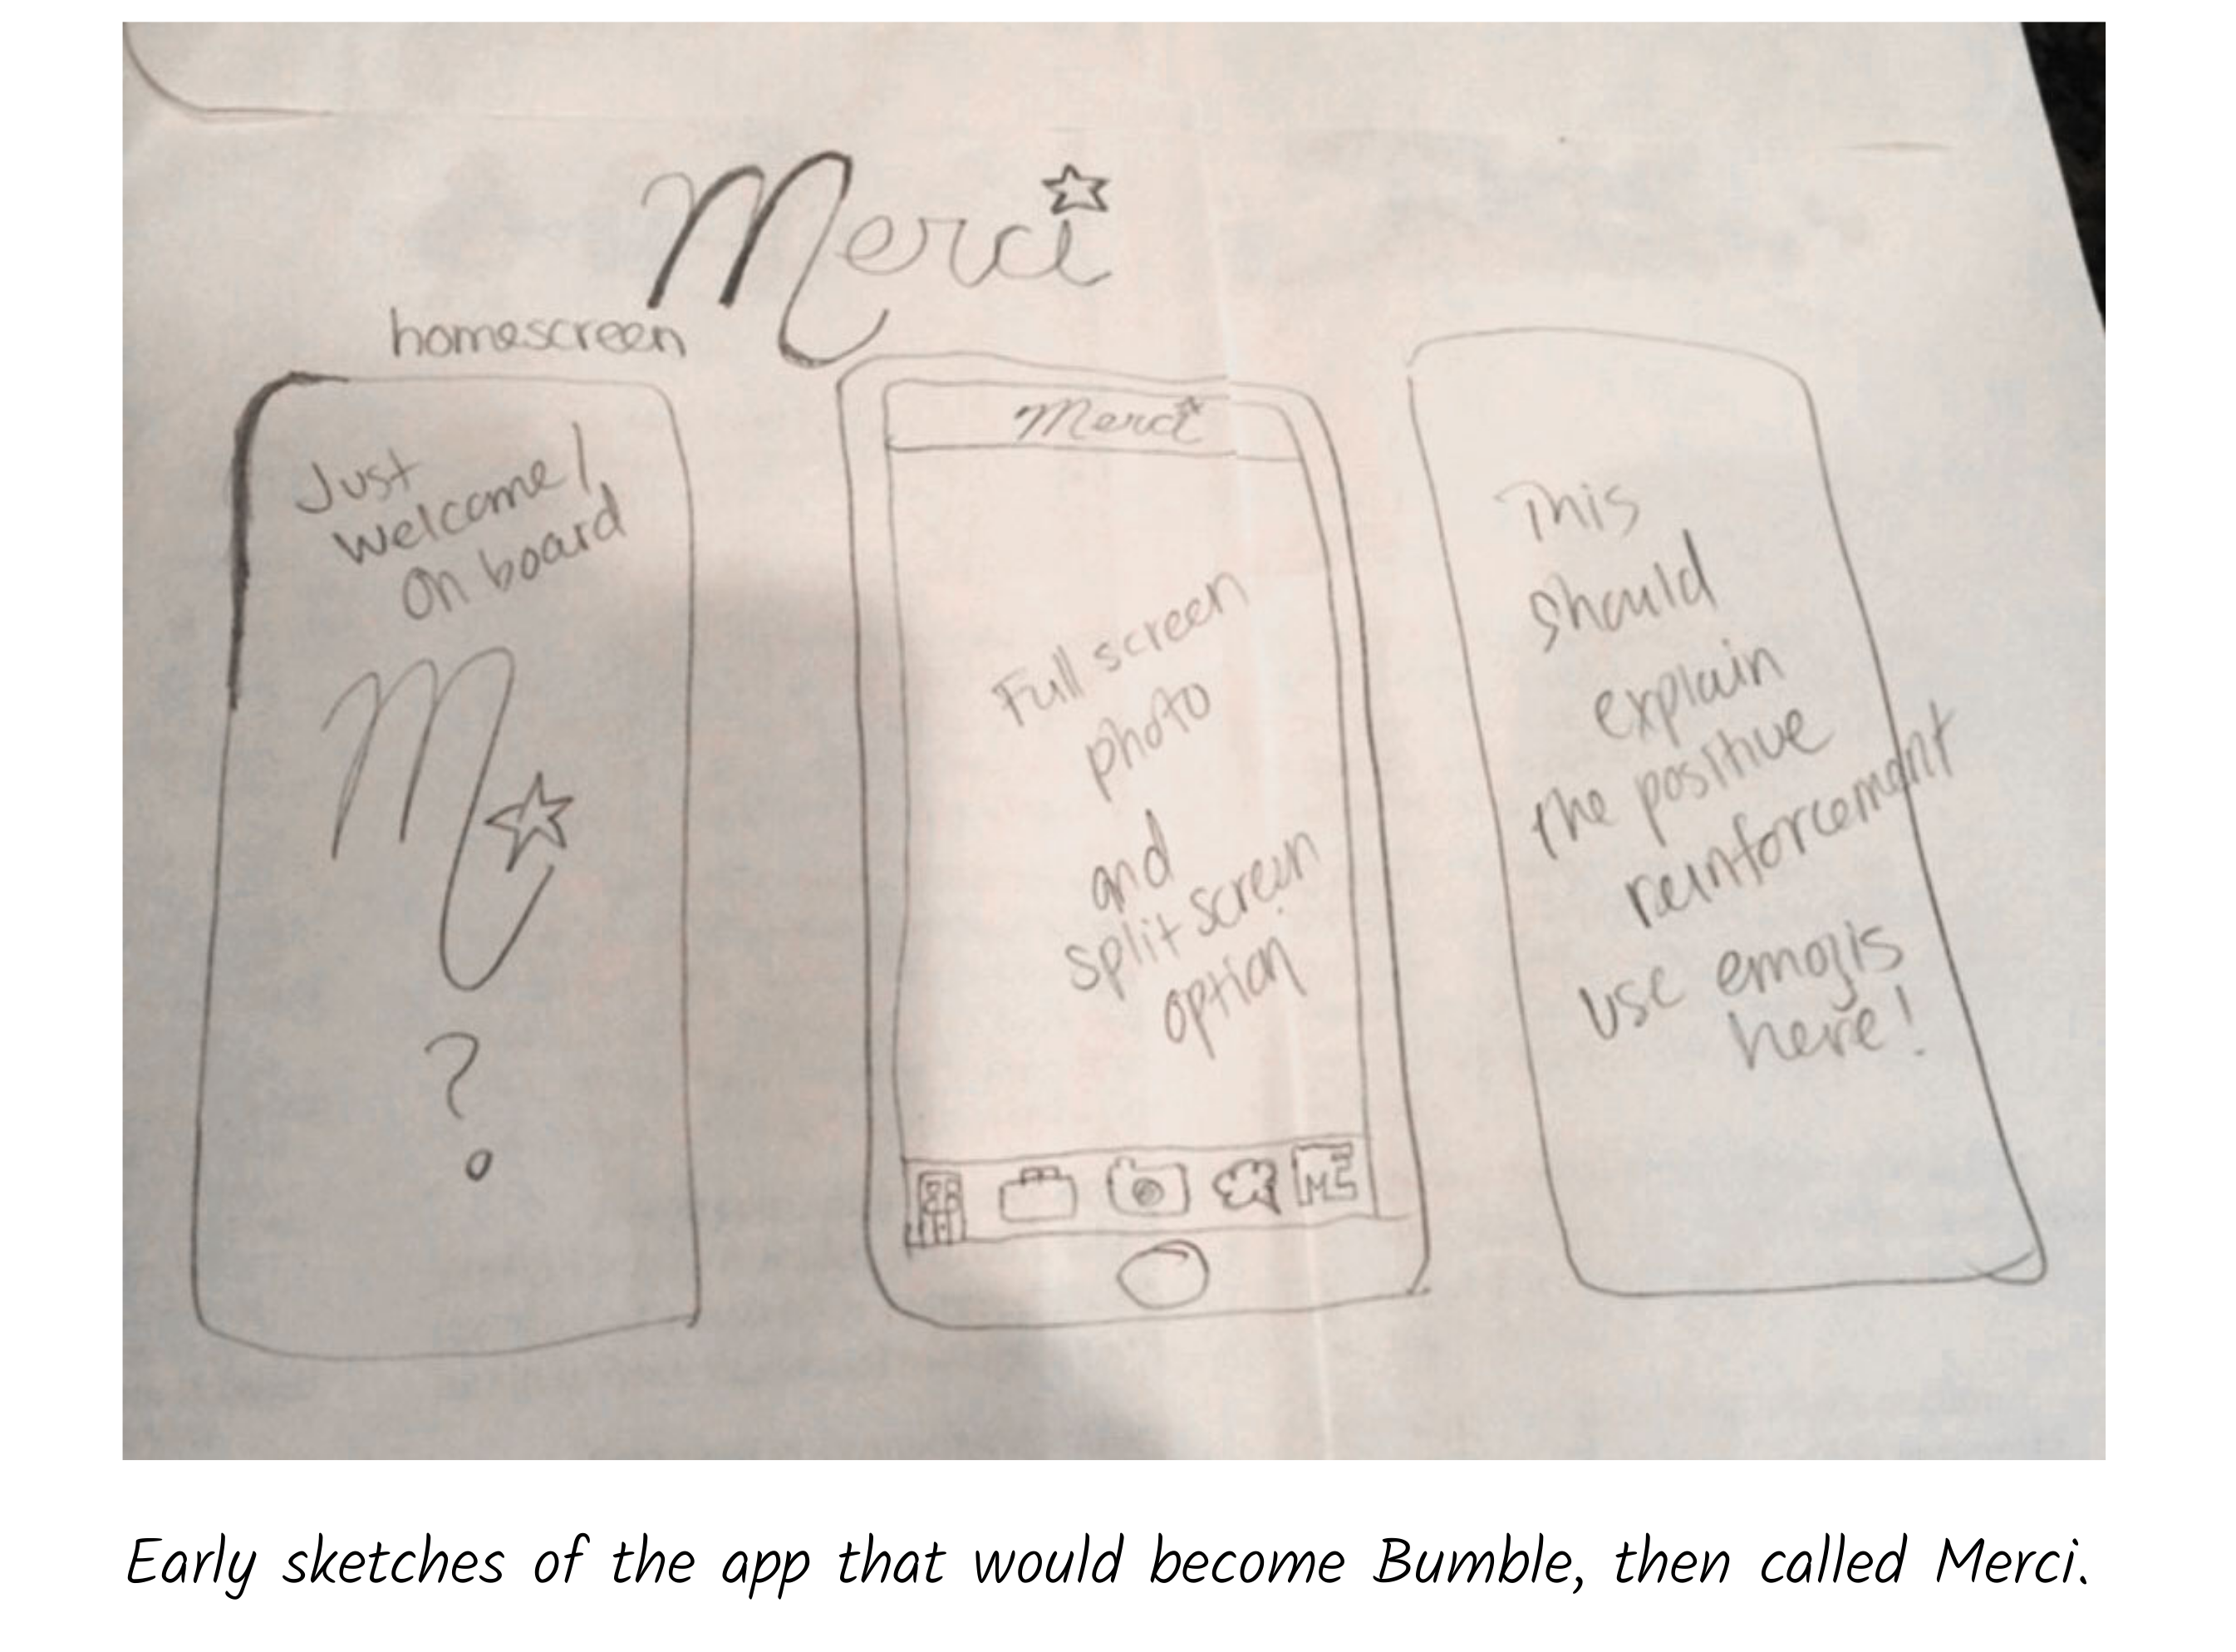 Merci
homescreen
Just
welcome/
On board
M
?
Merci
Full screen
photo
and
split screen
option
ME
This
should
explain
the positive
reinforcement
use emojis
here!
Early sketches of the app that would become Bumble, then called Merci.